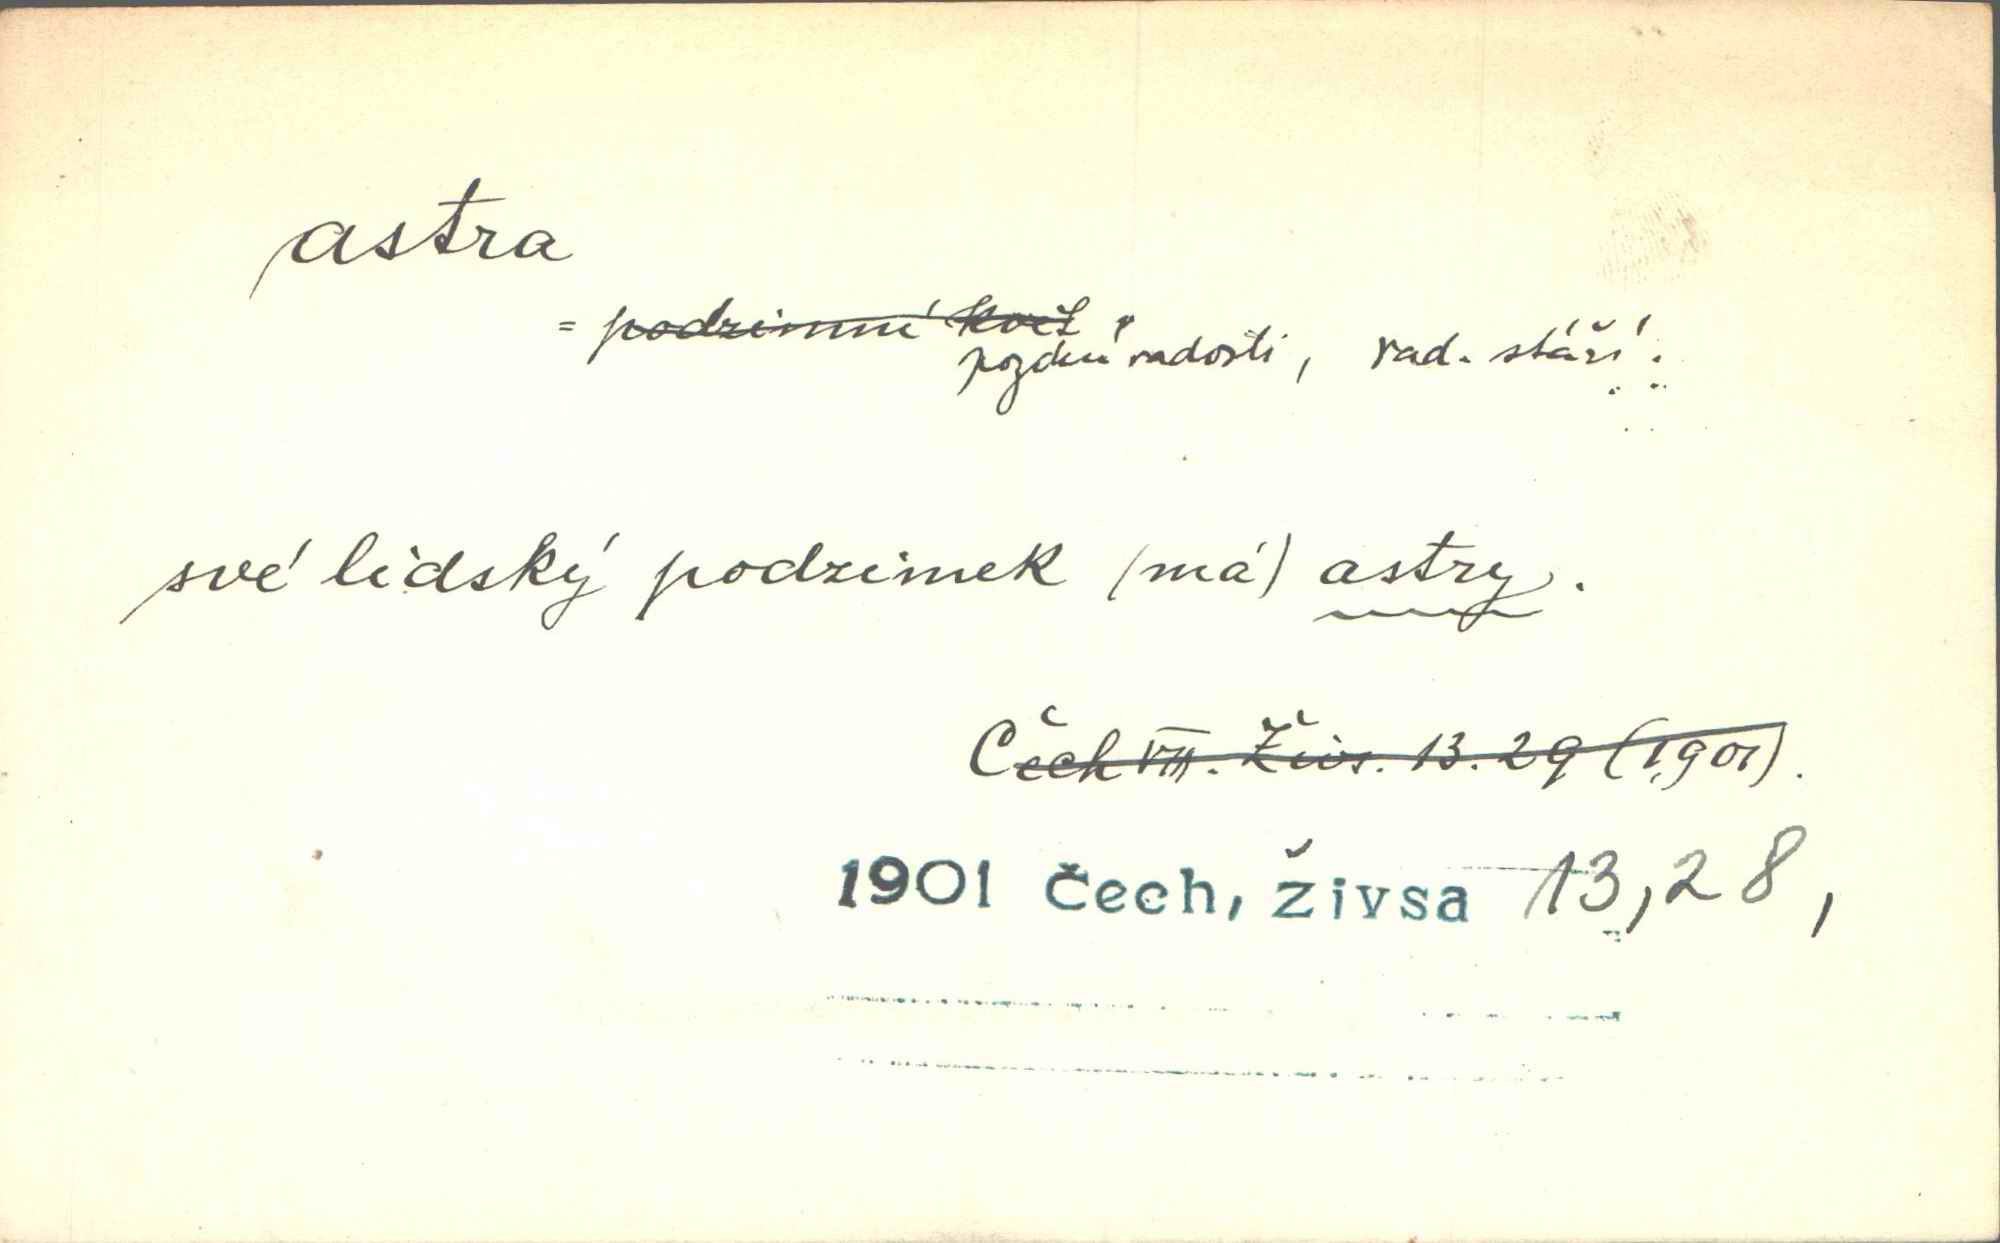 astra
= podzimní květ
pozdní radosti, rad. stáří.
své lidský podzimek (má) astry.
Čech VIII. Živs. 13. 29 (1901).
1901 Čech, živsa 13,28,